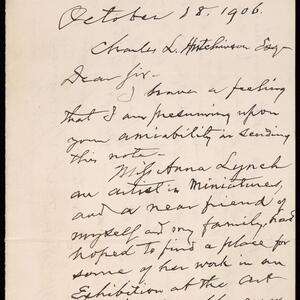 October 18. 1906.
Charles L. Hutchinson Esq-
Dear Sir-
I have a feeling
that I am presuming upon
your amiability in sending
this note-
Miss Anna Lynch
an artist in miniatures,
and a near friend of
myself and my family, had
hoped to find a place for
some of her work in an
Exhibition at the Art